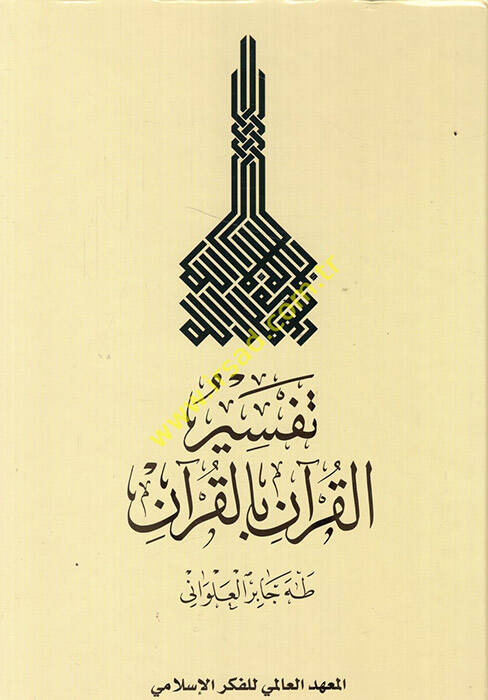 تفسير
القرآن بالقرآن
طه جابر العلواني
المعهد العالمي للفكر الإسلامي
www.irsad.com.tr